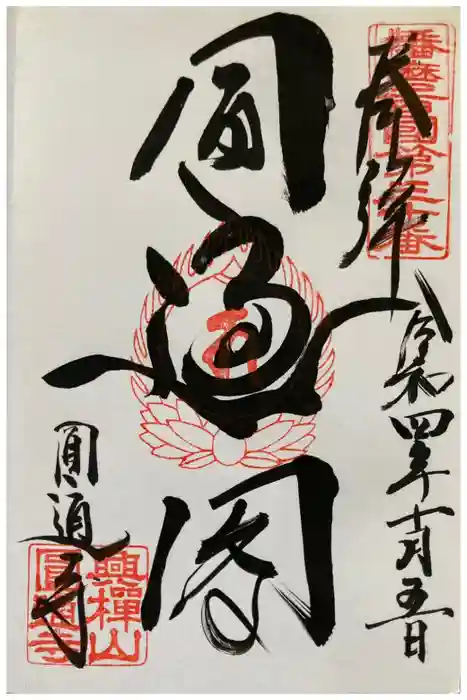 奉拝
播磨西國第三十番
令和四年十一月五日
圓通閣
圓通寺
興禅山
圓通寺